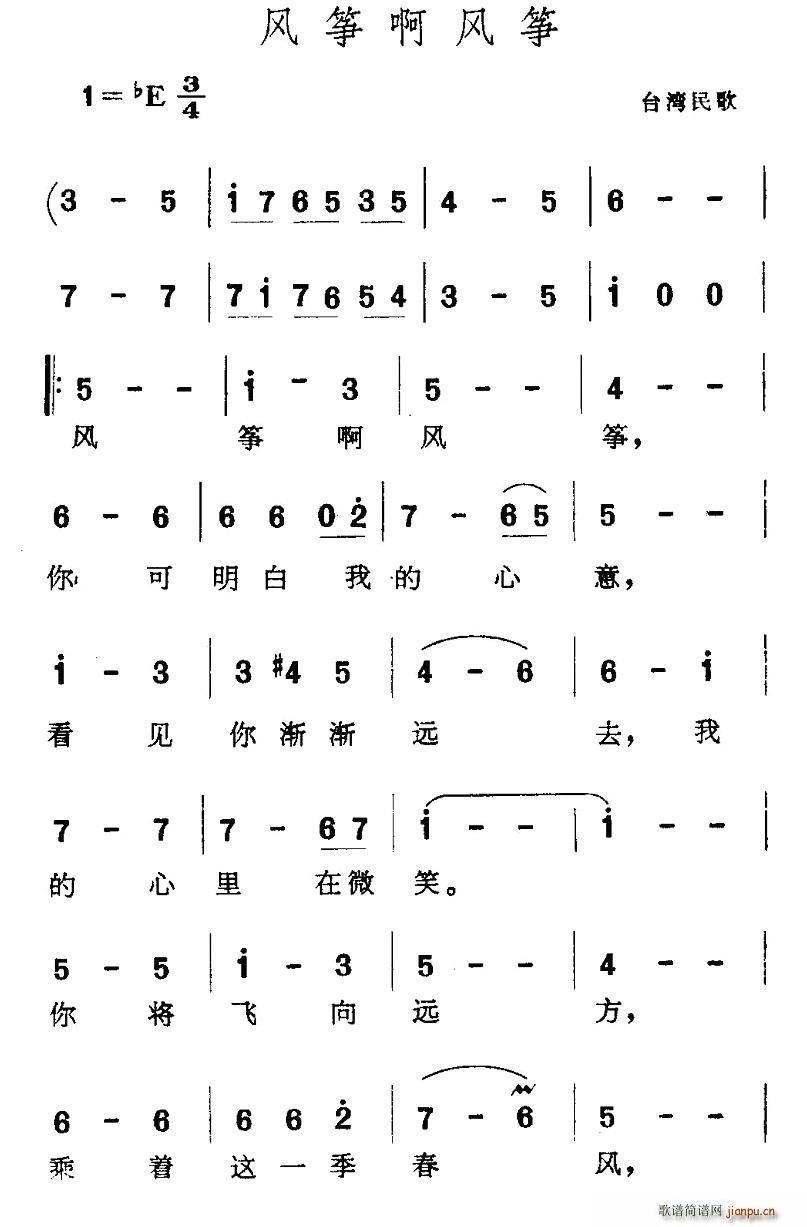 风筝啊风筝
1=♭E 3/4
台湾民歌
(3 - 5 | i 7 6 5 3 5 | 4 - 5 | 6 - - |
7 - 7 | 7 i 7 6 5 4 | 3 - 5 | i 0 0 |
‖: 5 - - | i - 3 | 5 - - | 4 - - |
风 筝 啊 风 筝,
6 - 6 | 6 6 0 2̇ | 7 - 6 5 | 5 - - |
你 可 明 白 我 的 心 意,
i - 3 | 3 #4 5 | 4 - 6 | 6 - i |
看 见 你 渐 渐 远 去, 我
7 - 7 | 7 - 6 7 | i - - | i - - |
的 心 里 在 微 笑。
5 - 5 | i - 3 | 5 - - | 4 - - |
你 将 飞 向 远 方,
6 - 6 | 6 6 2̇ | 7 - 6 | 5 - - |
乘 着 这 一 季 春 风,
歌谱简谱网 jianpu.cn